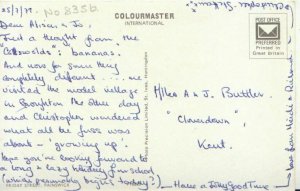 25/7/78
No 835b
COLOURMASTER
INTERNATIONAL
POST OFFICE
PREFERRED
Printed in
Great Britain
Dear Alison & Jo,
Just a thought from the
"Cotswolds"; bananas.
And now for something
completely different .... we
visited the model village
in Bourton the other day
and Christopher wondered
what all the fuss was
about - 'growing up'.
Hope you're looking forward to
a long & lazy holiday from school
(which presumably begins today?)
Have a jolly good time
love from Heidi &
Misses A & J Buttler
"Clowndown",
Kent.
Precision Limited, St. Ives, Huntingdon
FRIDAY STREET, PAINSWICK